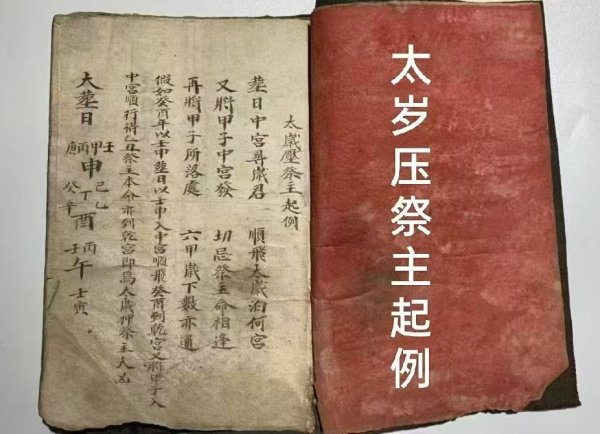 太岁压祭主起例
太歲壓祭主起例
葬日中宮尋歲君 順飛太歲泊何宮
又將甲子中宮發 切忌祭主命相逢
再將甲子所落處 六甲歲下數亦通
假如癸酉年以壬申葬日以壬申入中宮順飛癸酉到乾宮又將甲子入
中宮順行得乙丑祭主本命亦到乾宮即爲太歲押祭主人凶
大葬日 壬甲丙庚申 乙己丁辛癸酉 丙壬午 壬寅